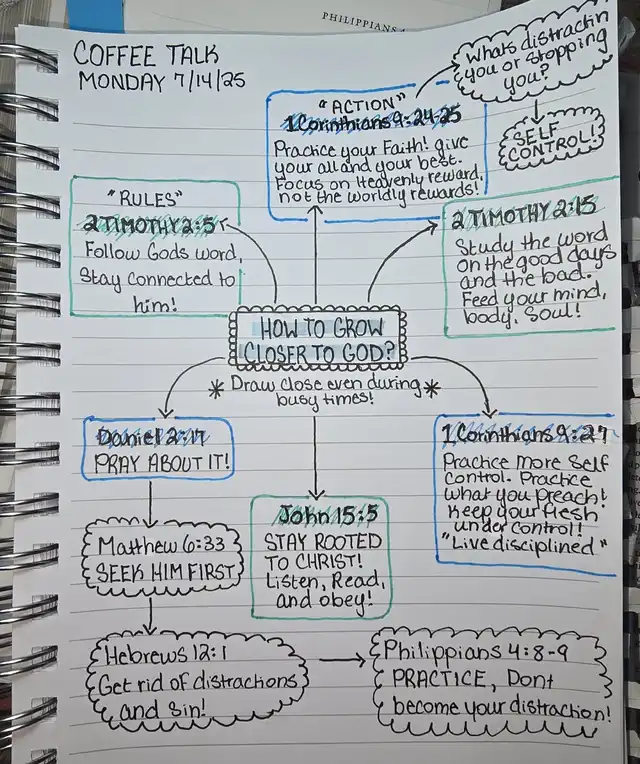 PHILIPPIANS 4
COFFEE TALK
MONDAY 7/14/25
Whats distractin
you or stopping
you?
SELF
CONTROL!
"ACTION"
1 Corinthians 9:24-25
Practice your Faith! give
your all and your best.
Focus on Heavenly reward,
not the worldly rewards!
"RULES"
2 TIMOTHY 2:5
Follow Gods word,
Stay connected to
him!
2 TIMOTHY 2:15
Study the word
on the good days
and the bad.
Feed your mind,
body, Soul!
HOW TO GROW
CLOSER TO GOD?
* Draw close even during *
busy times!
Daniel 2:17
PRAY ABOUT IT!
1 Corinthians 9:27
Practice more Self
Control. Practice
what you preach!
Keep your flesh
under control!
"Live disciplined"
John 15:5
STAY ROOTED
TO CHRIST!
Listen, Read,
and obey!
Matthew 6:33
SEEK HIM FIRST
Hebrews 12:1
Get rid of distractions
and Sin!
Philippians 4:8-9
PRACTICE, Dont
become your distraction!